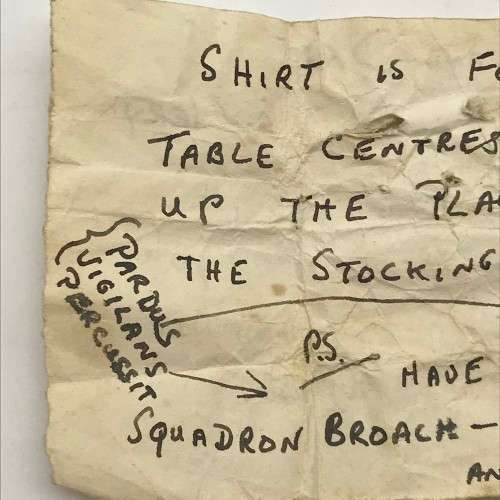 SHIRT IS FO
TABLE CENTRES
UP THE PLA
THE STOCKING
PARDUS
VIGILANS
PERCUSSIT
P.S. HAVE
SQUADRON BROACH —
AN